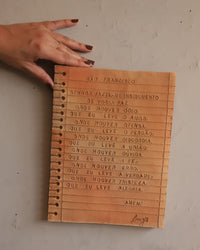 SÃO FRANCISCO
DE VOSSA PAZ
ONDE HOUVER ÓDIO
QUE EU LEVE O AMOR,
ONDE HOUVER
QUE EU LEVE O PERDÃO,
ONDE HOUVER DISCÓRDIA
QUE EU LEVE A UNIÃO
ONDE HOUVER DÚVIDA
QUE EU LEVE A FÉ,
ONDE HOUVER
QUE EU LEVE A VERDADE,
ONDE HOUVER TRISTEZA
QUE EU LEVE ALEGRIA
AMÉM!